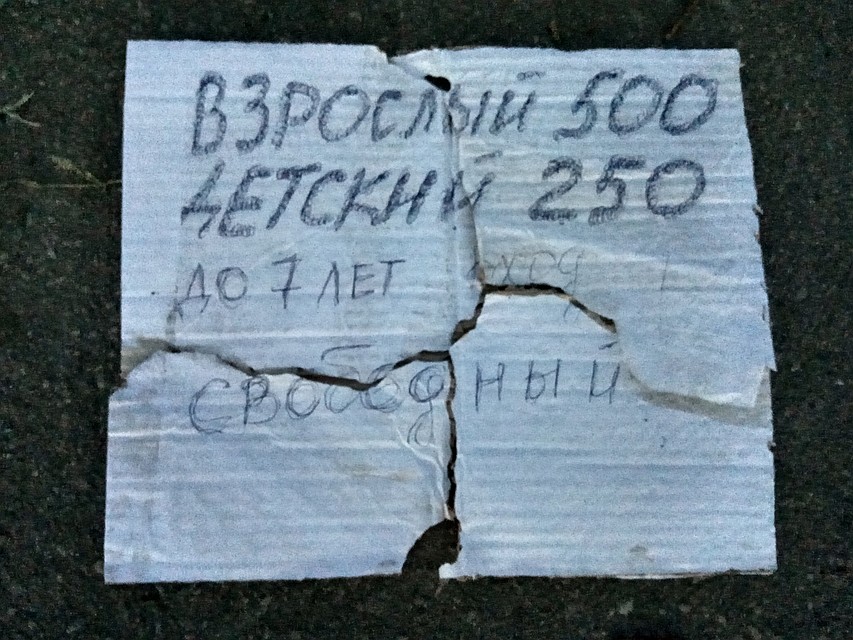 ВЗРОСЛЫЙ 500
ДЕТСКИЙ 250
ДО 7 ЛЕТ ВХОД
СВОБОДНЫЙ